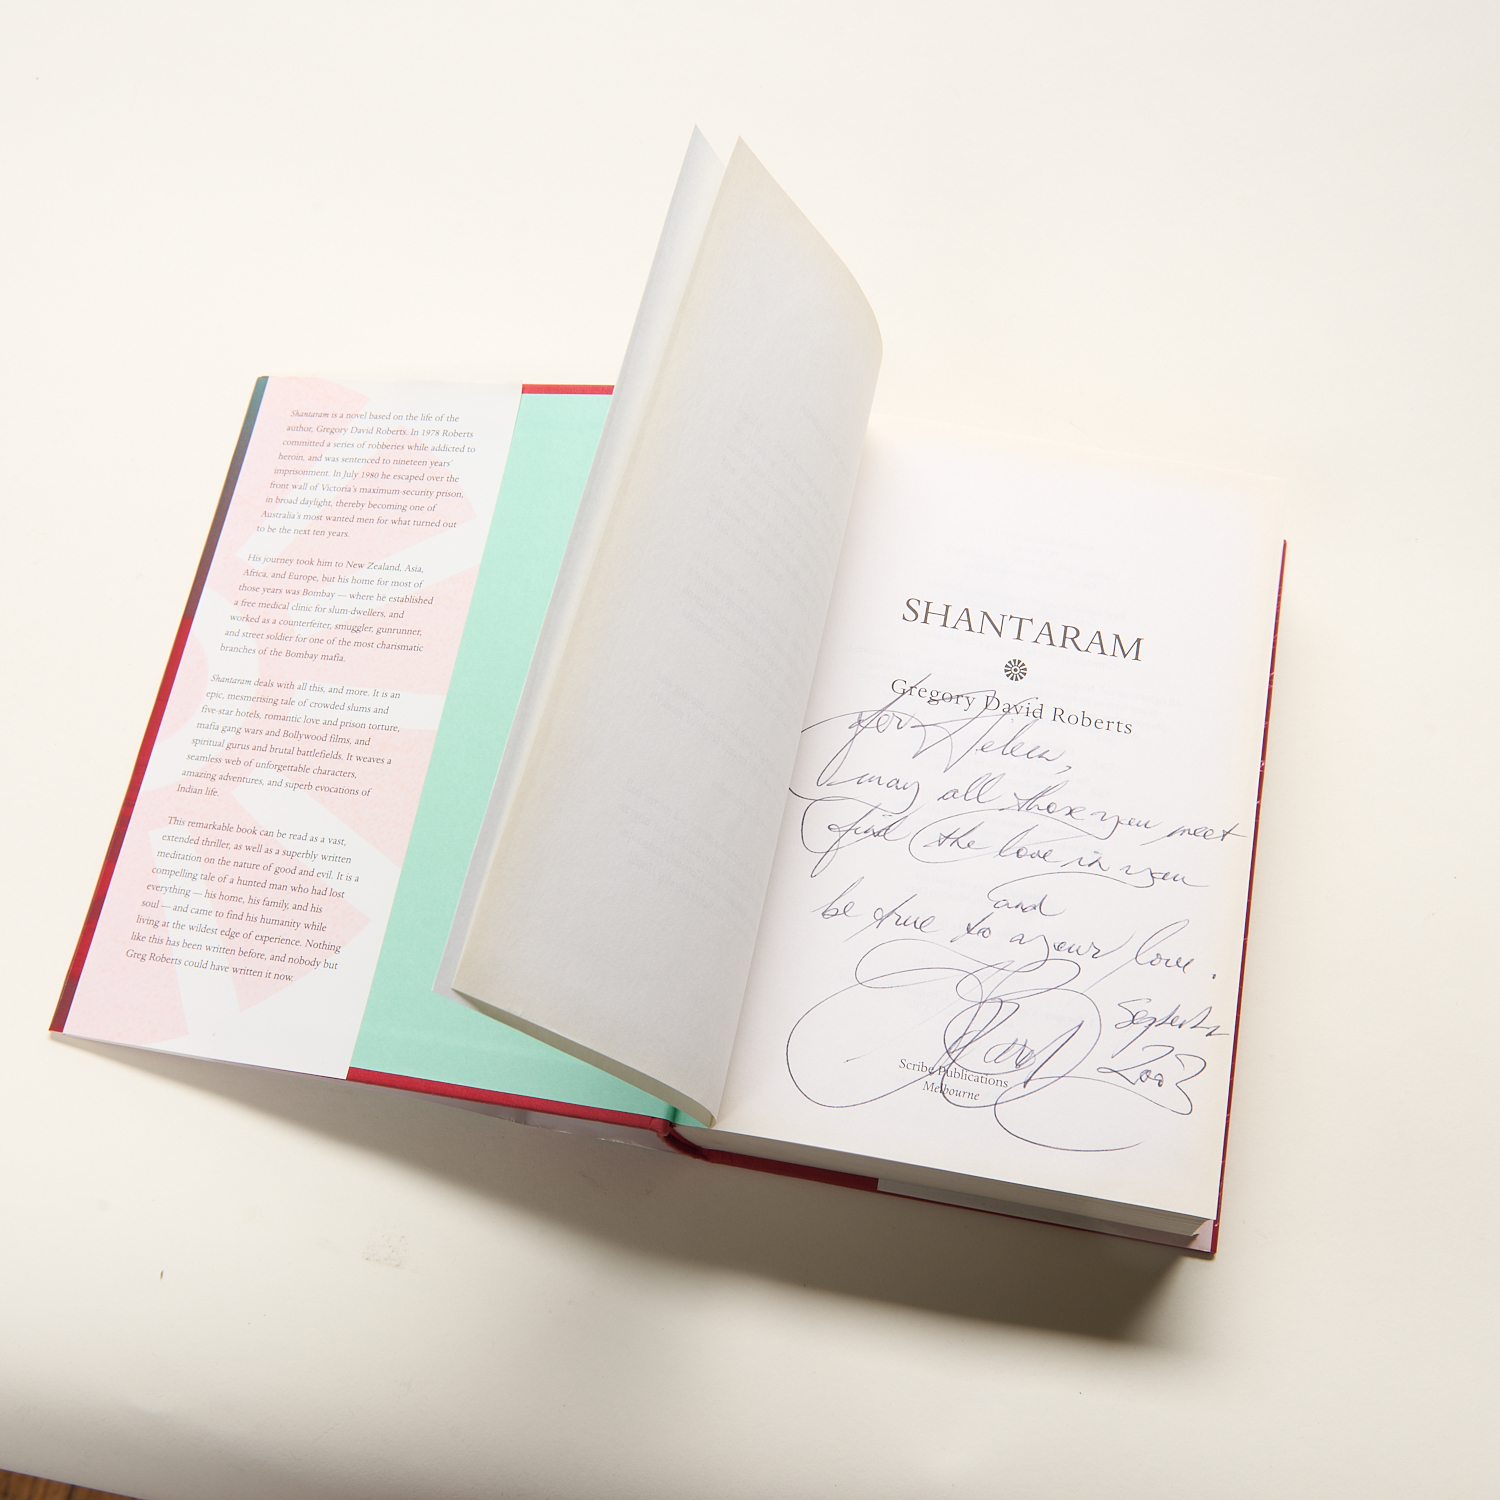 Shantaram is a novel based on the life of the
author, Gregory David Roberts. In 1978 Roberts
committed a series of robberies while addicted to
heroin, and was sentenced to nineteen years'
imprisonment. In July 1980 he escaped over the
front wall of Victoria's maximum-security prison,
in broad daylight, thereby becoming one of
Australia's most wanted men for what turned out
to be the next ten years.
His journey took him to New Zealand, Asia,
Africa, and Europe, but his home for most of
those years was Bombay — where he established
a free medical clinic for slum-dwellers, and
worked as a counterfeiter, smuggler, gunrunner,
and street soldier for one of the most charismatic
branches of the Bombay mafia.
Shantaram deals with all this, and more. It is an
epic, mesmerising tale of crowded slums and
five-star hotels, romantic love and prison torture,
mafia gang wars and Bollywood films, and
spiritual gurus and brutal battlefields. It weaves a
seamless web of unforgettable characters,
amazing adventures, and superb evocations of
Indian life.
This remarkable book can be read as a vast,
extended thriller, as well as a superbly written
meditation on the nature of good and evil. It is a
compelling tale of a hunted man who had lost
everything — his home, his family, and his
soul — and came to find his humanity while
living at the wildest edge of experience. Nothing
like this has been written before, and nobody but
Greg Roberts could have written it now.
SHANTARAM
Gregory David Roberts
for Helen,
may all those you meet
find the love in you
and
be true to your love.
September
2003
Scribe Publications
Melbourne